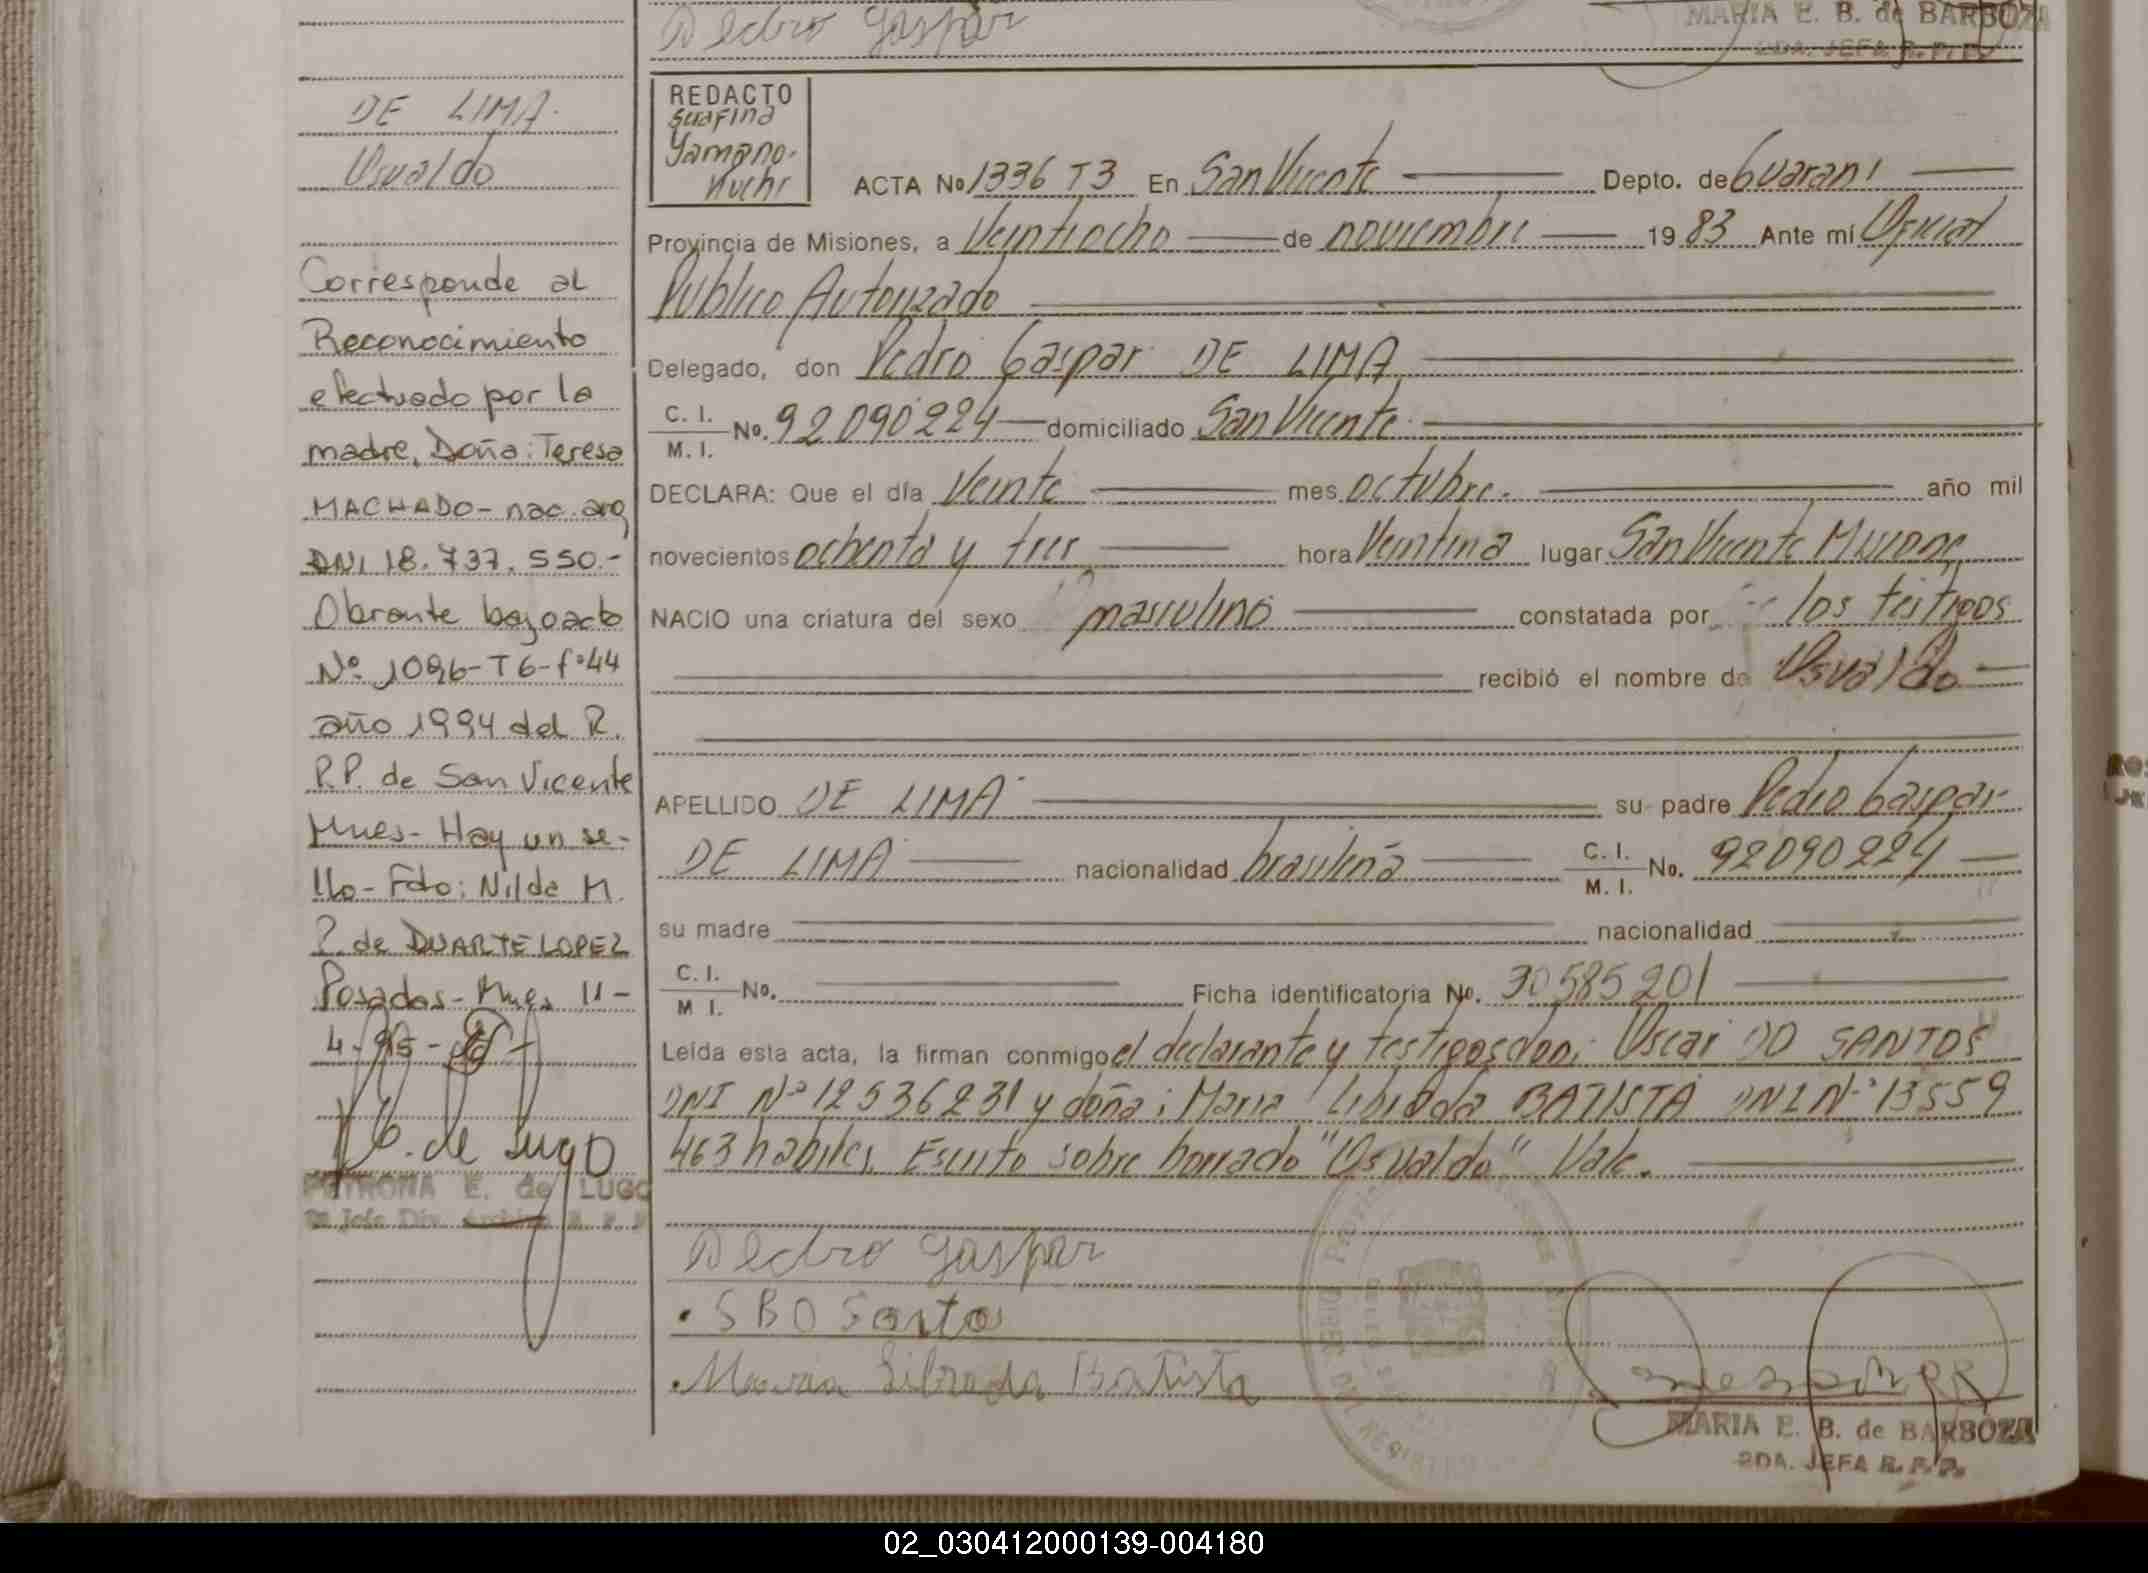 Pedro Gaspar
MARIA E. B. de BARBOZA
2DA. JEFA R. P. P.
DE LIMA.
Osvaldo
Corresponde al
Reconocimiento
efectuado por la
madre, Doña: Teresa
MACHADO- nac. arg
DNI 18.737.550.-
Obrante bajo acto
Nº 1096-T6-fº44
año 1994 del R.
P.P. de San Vicente
Mnes- Hay un se-
llo- Fdo: Nilda M.
P. de DUARTE LOPEZ
Posadas- Mnes 11-
4-95-
E. de Lugo
PETRONA E. de LUGO
REDACTO
Serafina
Yamano.
ACTA Nº 1336 T3 En San Vicente Depto. de Guarani
Provincia de Misiones, a Veintiocho de noviembre 19 83 Ante mí Oficial
Publico Autorizado
Delegado, don Pedro Gaspar DE LIMA
C. I.
M. I. No. 92090224 domiciliado San Vicente
DECLARA: Que el día Veinte mes octubre. año mil
novecientos ochenta y tres hora Veintina lugar San Vicente Misiones
NACIO una criatura del sexo masculino constatada por los testigos
recibió el nombre de Osvaldo
APELLIDO DE LIMA su padre Pedro Gaspar
DE LIMA nacionalidad brasileña C. I.
M. I. No. 92090224
su madre nacionalidad
C. I.
M I. No. Ficha identificatoria No. 30585201
Leída esta acta, la firman conmigo el declarante y testigos don: Oscar DO SANTOS
DNI Nº 12536231 y doña: Maria Librada BATISTA DNI Nº 13559
463 habiles. Escrito sobre borrado "Osvaldo" Vale.
Pedro Gaspar
. SBO Santo
. Maria Librada Batista
MARIA E. B. de BARBOZA
2DA. JEFA R. P. P.
02_030412000139-004180